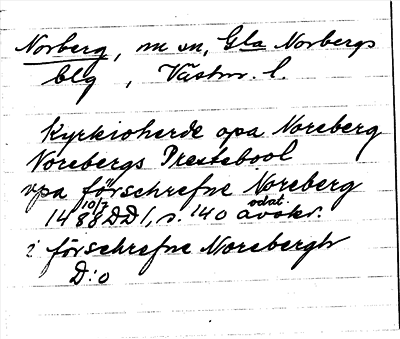 Norberg, m m, Gla Norbergs
blg, Västm. l.
Kyrkioherde opa Noreberg
Norebergs Prestebool
vpa förschrefne Noreberg
10/7 odat.
1488 DD 1, s. 140 avskr.
i förschrefne Norebergh
D:o